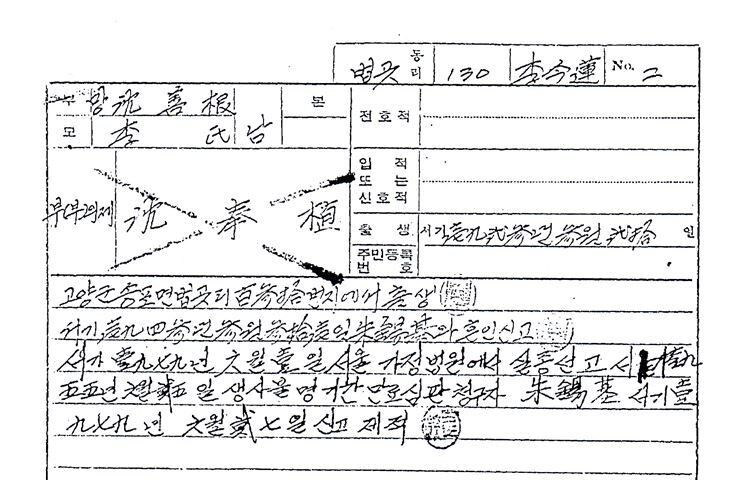 법곳 동리 130 李今蓮 No. 2
부 망沈善根 본
모 李氏 남
전호적
입적 또는 신호적
부(부)의제 沈奉植
출생 서기壹九貳參년參월貳拾 일
주민등록번호
고양군송포면법곳리百參拾번지에서 출생
서기壹九四參년參월參拾壹일朱錫基와 혼인신고
서기壹九七九년六월壹일서울가정법원에서 실종선고 서기壹九
五五년六월貳五일 생사불명 기간만료심판 청구자 朱錫基 서기壹
九七九년 六월貳七일신고 제적